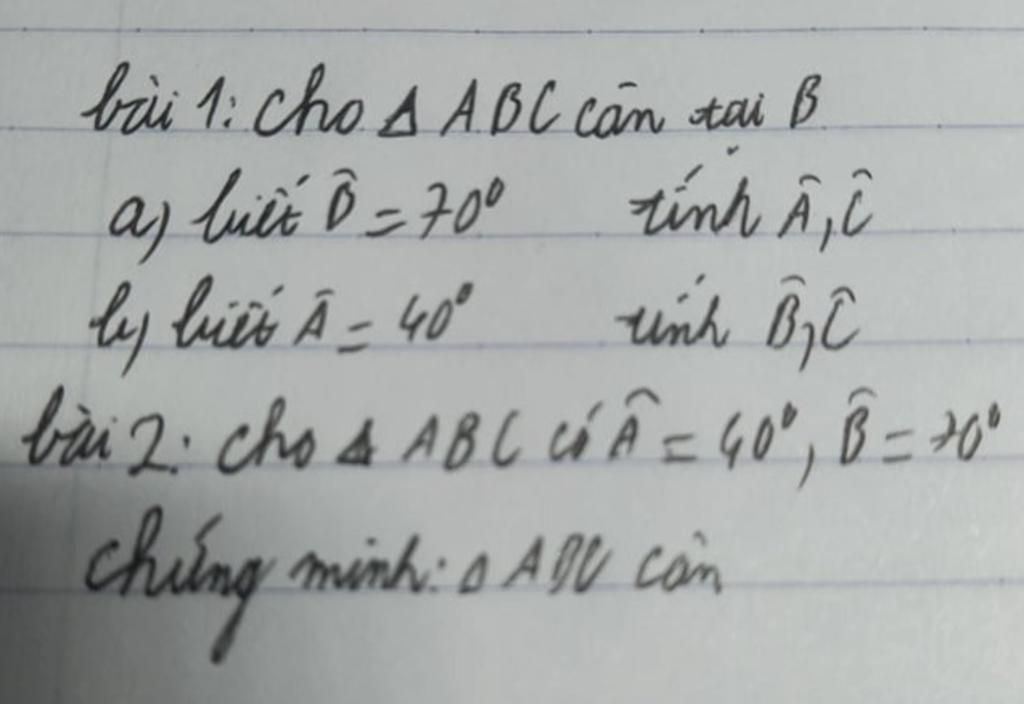 bài 1: cho Δ ABC cân tại B
a) biết B̂ = 70⁰ tính Â, Ĉ
b) biết Â = 40⁰ tính B̂, Ĉ
bài 2: cho Δ ABC có Â = 40⁰, B̂ = 70⁰
chứng minh: Δ ABC cân